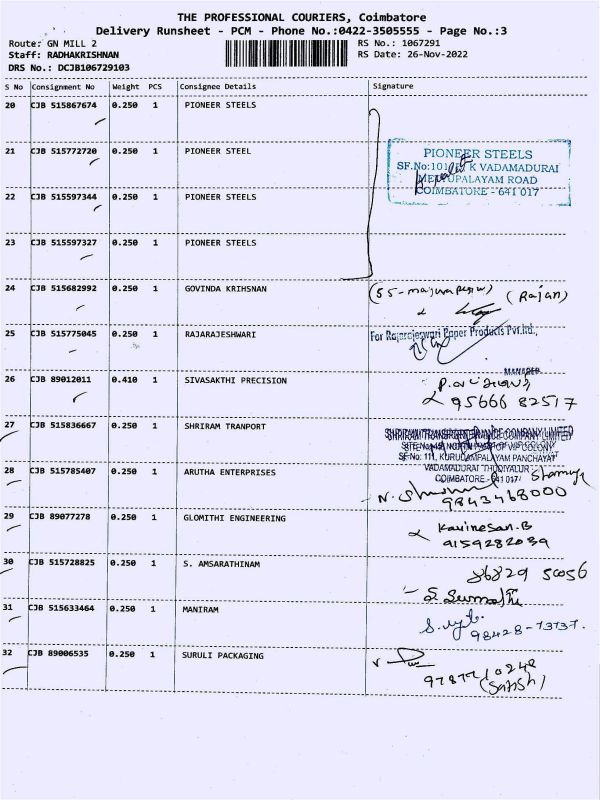 THE PROFESSIONAL COURIERS, Coimbatore
Delivery Runsheet - PCM - Phone No.:0422-3505555 - Page No.:3
Route: GN MILL 2 RS No.: 1067291
Staff: RADHAKRISHNAN RS Date: 26-Nov-2022
DRS No.: DCJB106729103
S No Consignment No Weight PCS Consignee Details Signature
20 CJB 515867674 0.250 1 PIONEER STEELS
21 CJB 515772720 0.250 1 PIONEER STEEL
PIONEER STEELS
SF.No:101 K VADAMADURAI
METTUPALAYAM ROAD
COIMBATORE - 641 017
22 CJB 515597344 0.250 1 PIONEER STEELS
23 CJB 515597327 0.250 1 PIONEER STEELS
24 CJB 515682992 0.250 1 GOVINDA KRIHSNAN
(Rajan)
25 CJB 515775045 0.250 1 RAJARAJESHWARI For Rajarajeswari Paper Products Pvt.ltd.,
MANAGER
26 CJB 89012011 0.410 1 SIVASAKTHI PRECISION
95666 82517
27 CJB 515836667 0.250 1 SHRIRAM TRANPORT
SHRIRAM TRANSPORT FINANCE COMPANY LIMITED
VIP COLONY
SF.No: 111, KURUDAMPALAYAM PANCHAYAT
VADAMADURAI THUDIYALUR
COIMBATORE - 641 017
28 CJB 515785407 0.250 1 ARUTHA ENTERPRISES
9843468000
29 CJB 89077278 0.250 1 GLOMITHI ENGINEERING Kavinesan.B
9159282039
30 CJB 515728825 0.250 1 S. AMSARATHINAM 86829 50056
31 CJB 515633464 0.250 1 MANIRAM
98428-73737.
32 CJB 89006535 0.250 1 SURULI PACKAGING
(Satish)